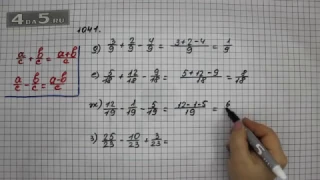 4DA5.RU
1041.
a/c + b/c = a+b/c
a/c - b/c = a-b/c
д) 3/9 + 2/9 - 4/9 = 3+2-4/9 = 1/9
е) 5/18 + 12/18 - 9/18 = 5+12-9/18 = 8/18
ж) 12/19 - 1/19 - 5/19 = 12-1-5/19 = 6
з) 25/23 - 10/23 + 3/23 =